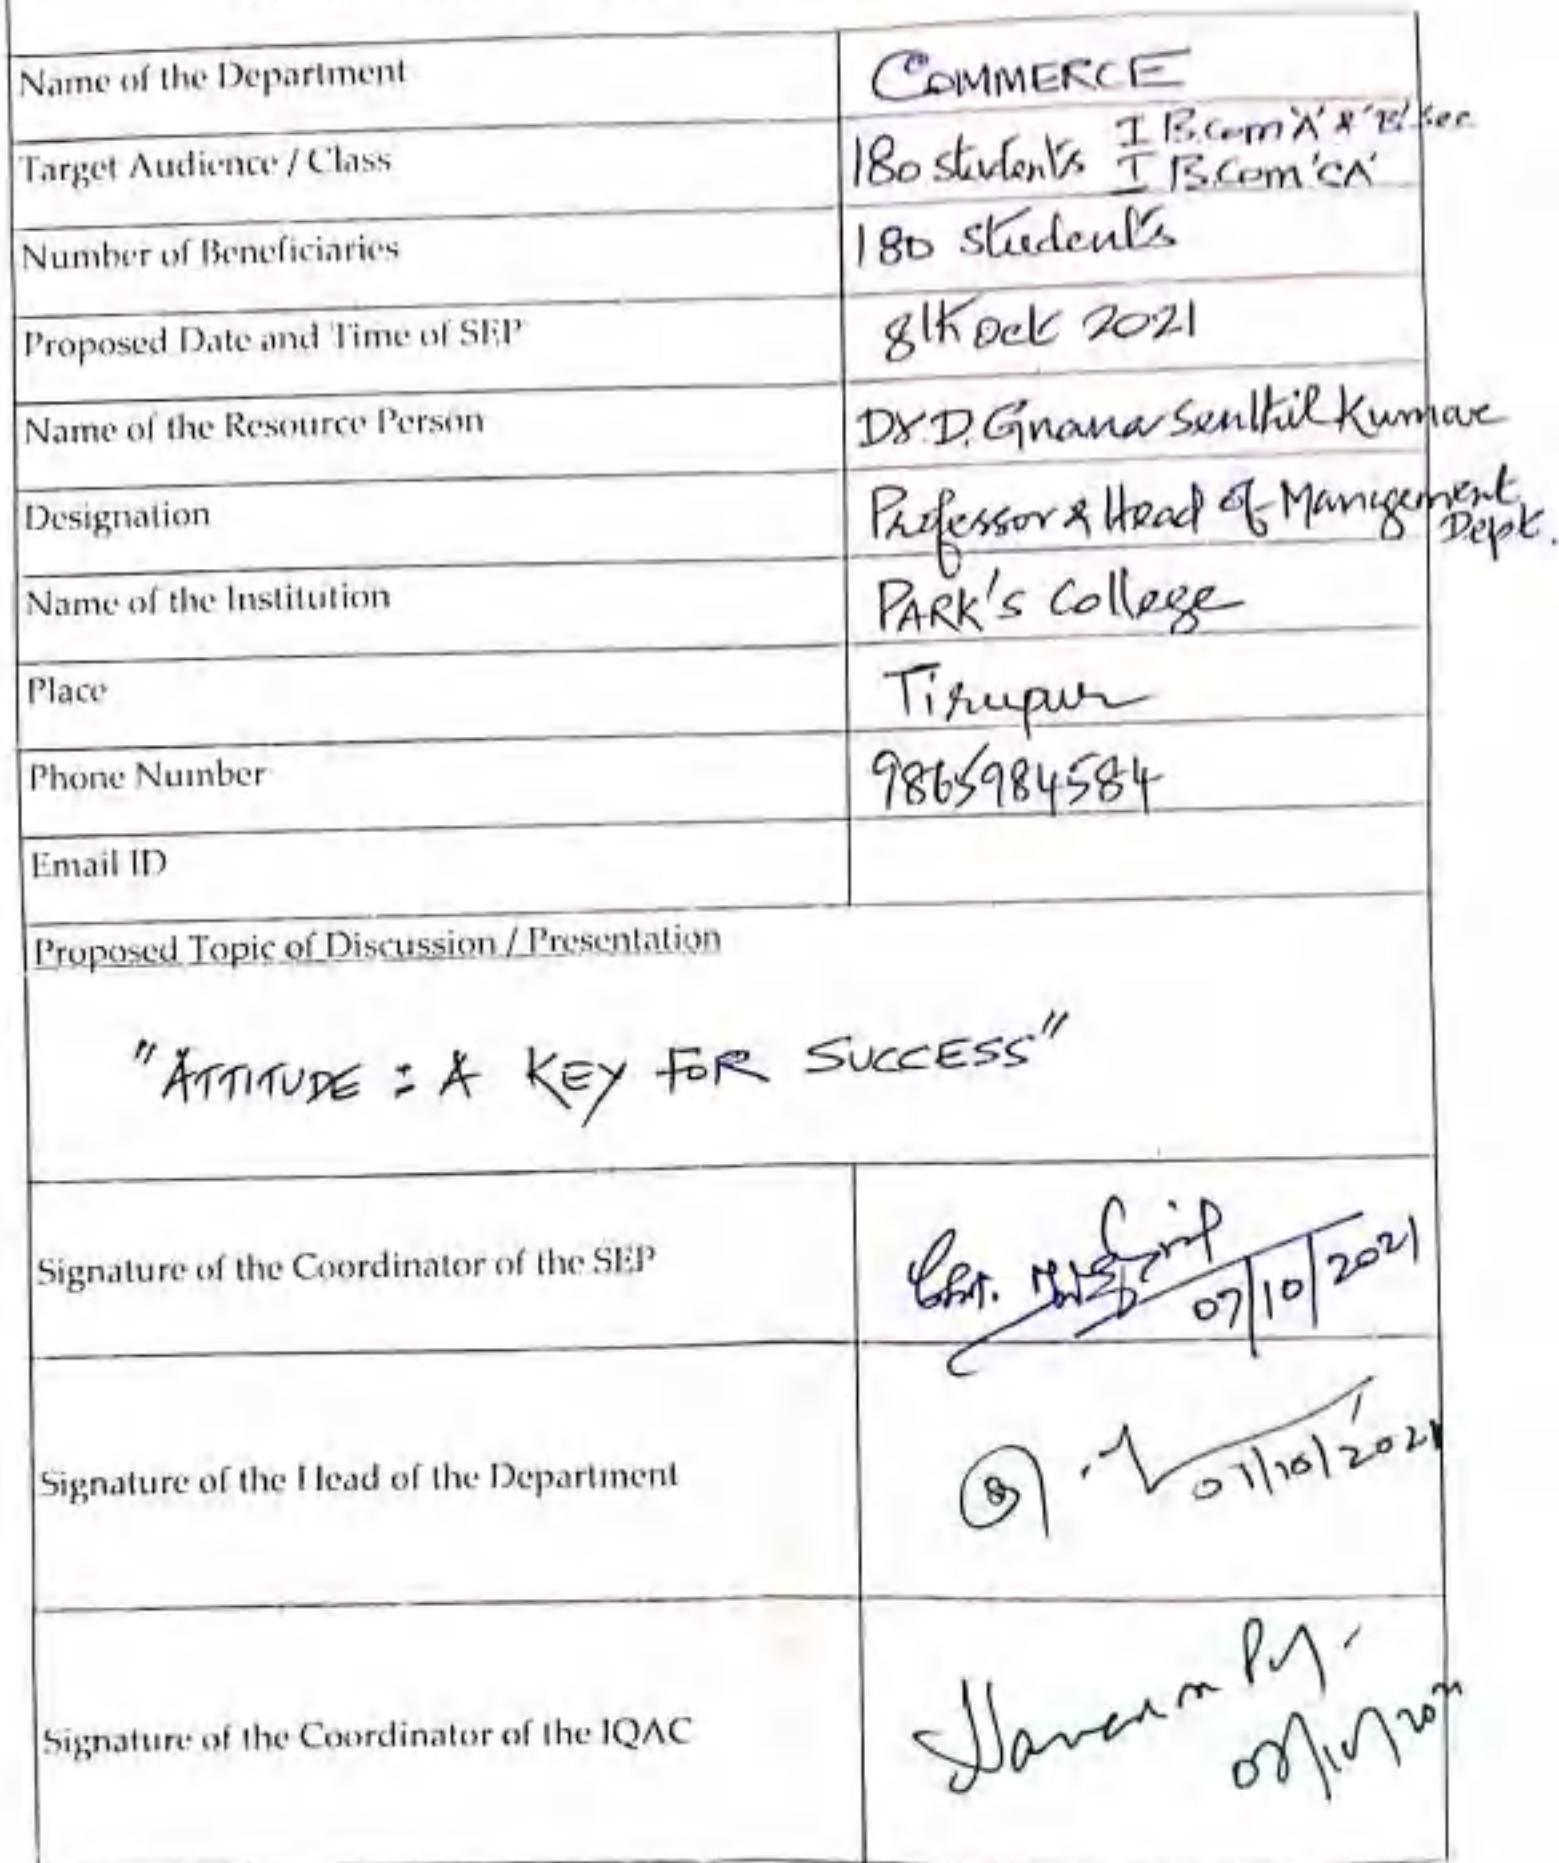 Name of the Department COMMERCE
Target Audience / Class 180 students I B.Com 'A' & 'B' Sec
I B.Com 'CA'
Number of Beneficiaries 180 students
Proposed Date and Time of SEP 8th Oct 2021
Name of the Resource Person Dr. D. Gnana Senthil Kumar
Designation Professor & Head of Management
Dept.
Name of the Institution PARK's College
Place Tirupur
Phone Number 9865984584
Email ID
Proposed Topic of Discussion / Presentation
"ATTITUDE : A KEY FOR SUCCESS"
Signature of the Coordinator of the SEP 07/10/2021
Signature of the Head of the Department 07/10/2021
Signature of the Coordinator of the IQAC